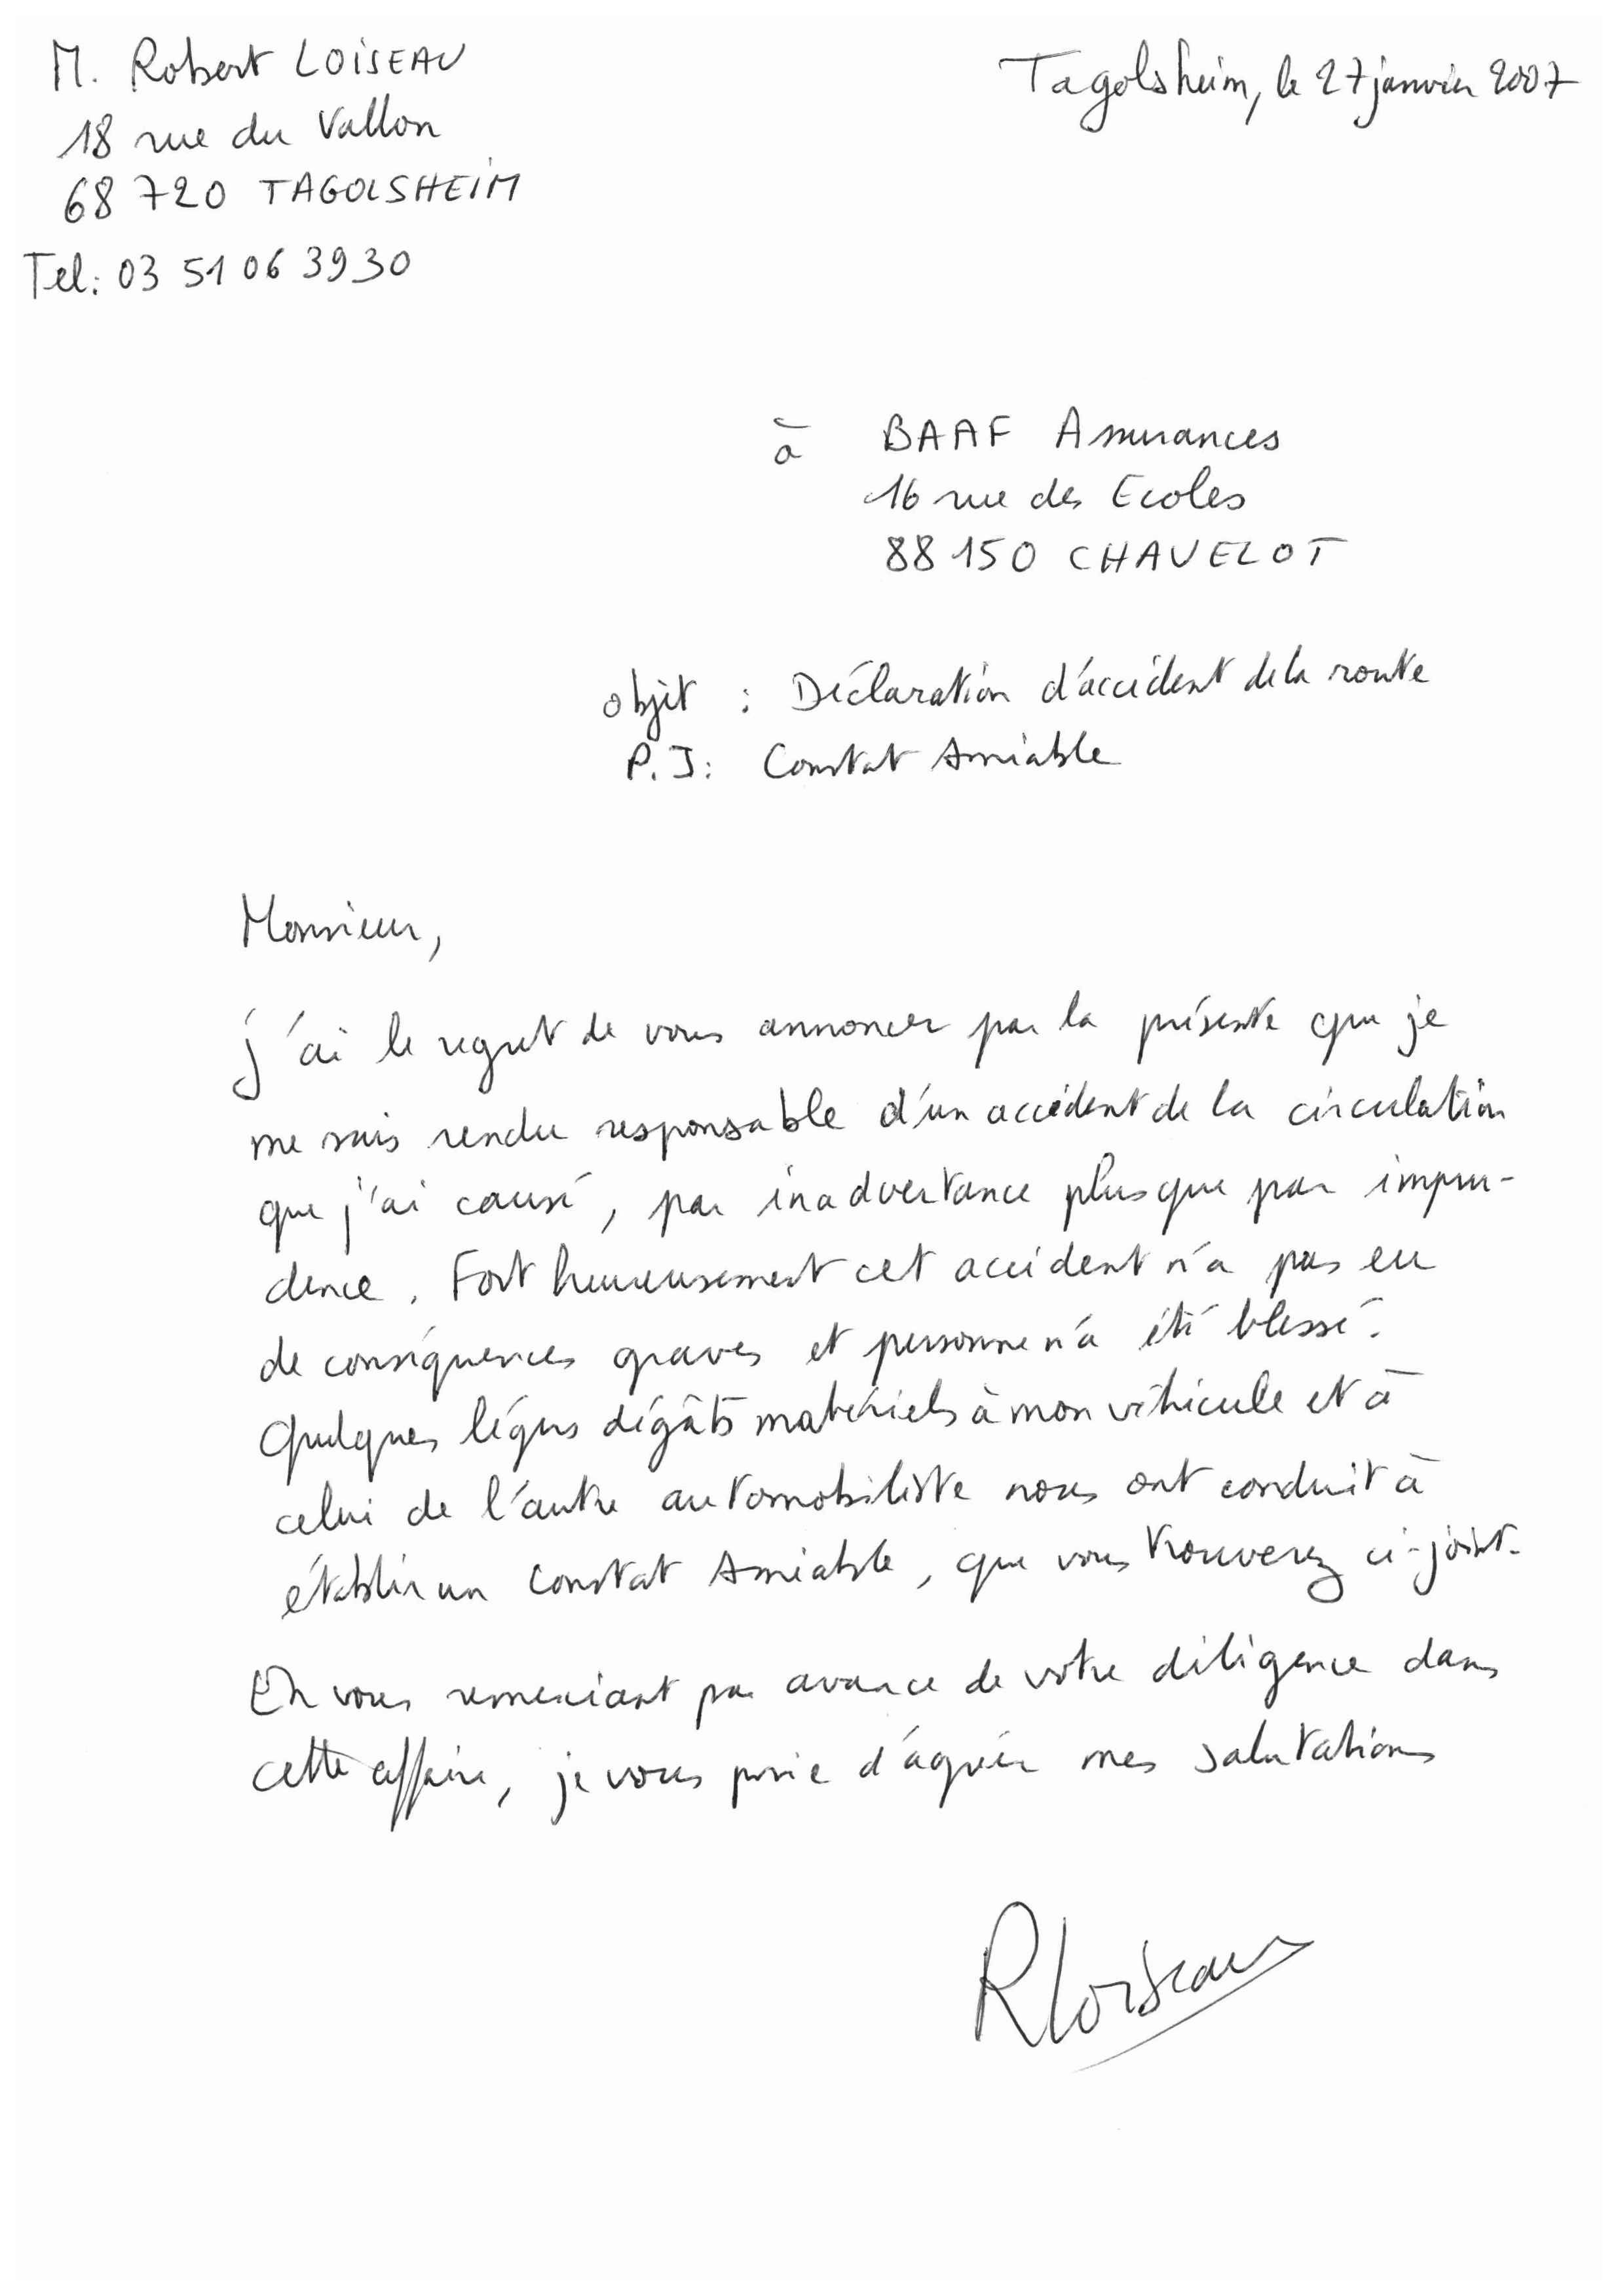 M. Robert LOISEAU
18 rue du Vallon
68 720 TAGOLSHEIM
Tel: 03 51 06 39 30
Tagolsheim, le 27 janvier 2007
à BAAF Assurances
16 rue des Ecoles
88 150 CHAVELOT
objet : Déclaration d'accident de la route
P.J: Constat Amiable
Monsieur,
j'ai le regret de vous annoncer par la présente que je
me suis rendu responsable d'un accident de la circulation
que j'ai causé, par inadvertance plus que par impru-
dence. Fort heureusement cet accident n'a pas eu
de conséquences graves et personne n'a été blessé.
Quelques légers dégâts matériels à mon véhicule et à
celui de l'autre automobiliste nous ont conduit à
établir un Constat Amiable, que vous trouverez ci-joint.
En vous remerciant par avance de votre diligence dans
cette affaire, je vous prie d'agréer mes salutations
RLoiseau